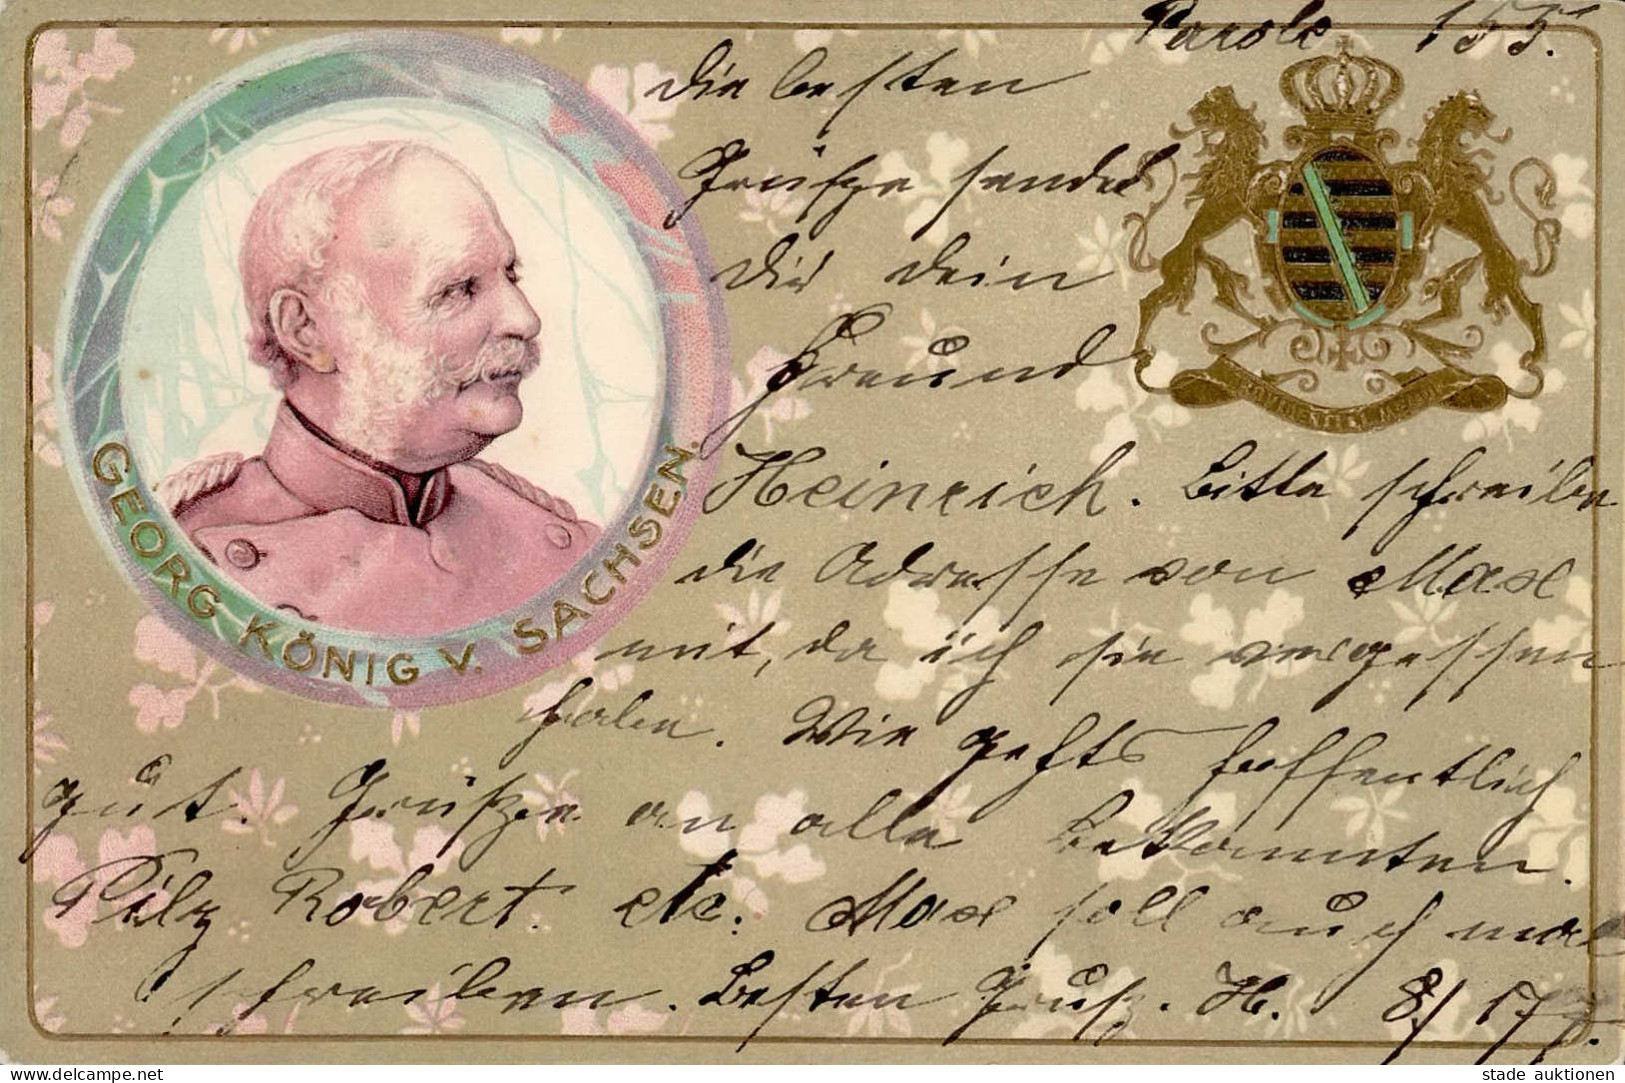 Parole 155.
die besten
Grüße sendet
Dir dein
Freund
Heinrich. Bitte schreibe
die Adresse von Max
mit, da ich sie vergessen
habe. Wie gehts hoffentlich
gut. Grüße an alle Bekannten.
Pilz Robert etc. Max soll auch mal
schreiben. Besten Gruß. H. 8/
GEORG KÖNIG V. SACHSEN.
PROVIDENTIAE MEMOR
stade auktionen